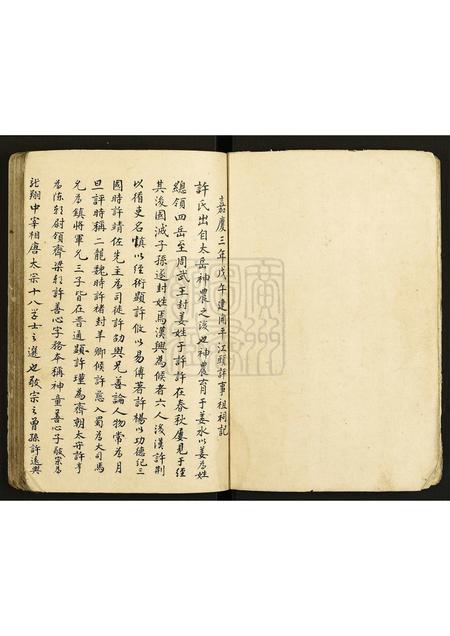 嘉慶三年戊午建闽平江頭許事祖祠記
許氏出自太岳神農之後也神農育于姜水以姜為姓
總領四岳至周武王封姜姓于許許在春秋屢見于經
其後國滅子孫遂封姓焉漢興為候者六人後漢許荆
以循吏名慎以經術顯許俶以易傳著許楊以功德紀三
國時許靖佐先主為司徒許劭與兄善論人物常為月
旦評時稱二龍魏時許褚封羊鄉候許慈入蜀為大司馬
允為鎮將軍允三子皆在晋通顯許瑾為齊朝太守許亨
為陳衛尉領齊梁許善心字務本稱神童善心子敬宗為
龍朔中宰相唐太宗十八學士之選也敬宗之曾孫許遠與